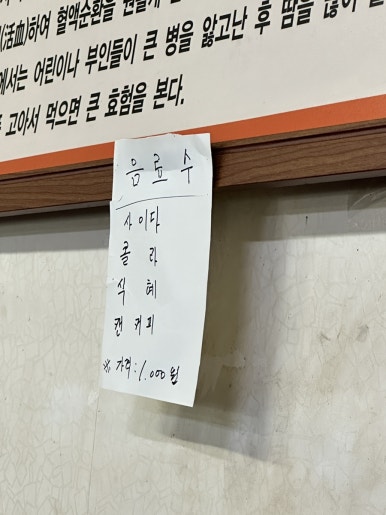 (活血)하여 혈액순환을
에서는 어린이나 부인들이 큰 병을 앓고난 후 땀을 많이
고아서 먹으면 큰 효험을 본다.
음료수
사이다
콜라
식혜
캔커피
※ 가격: 1.000원